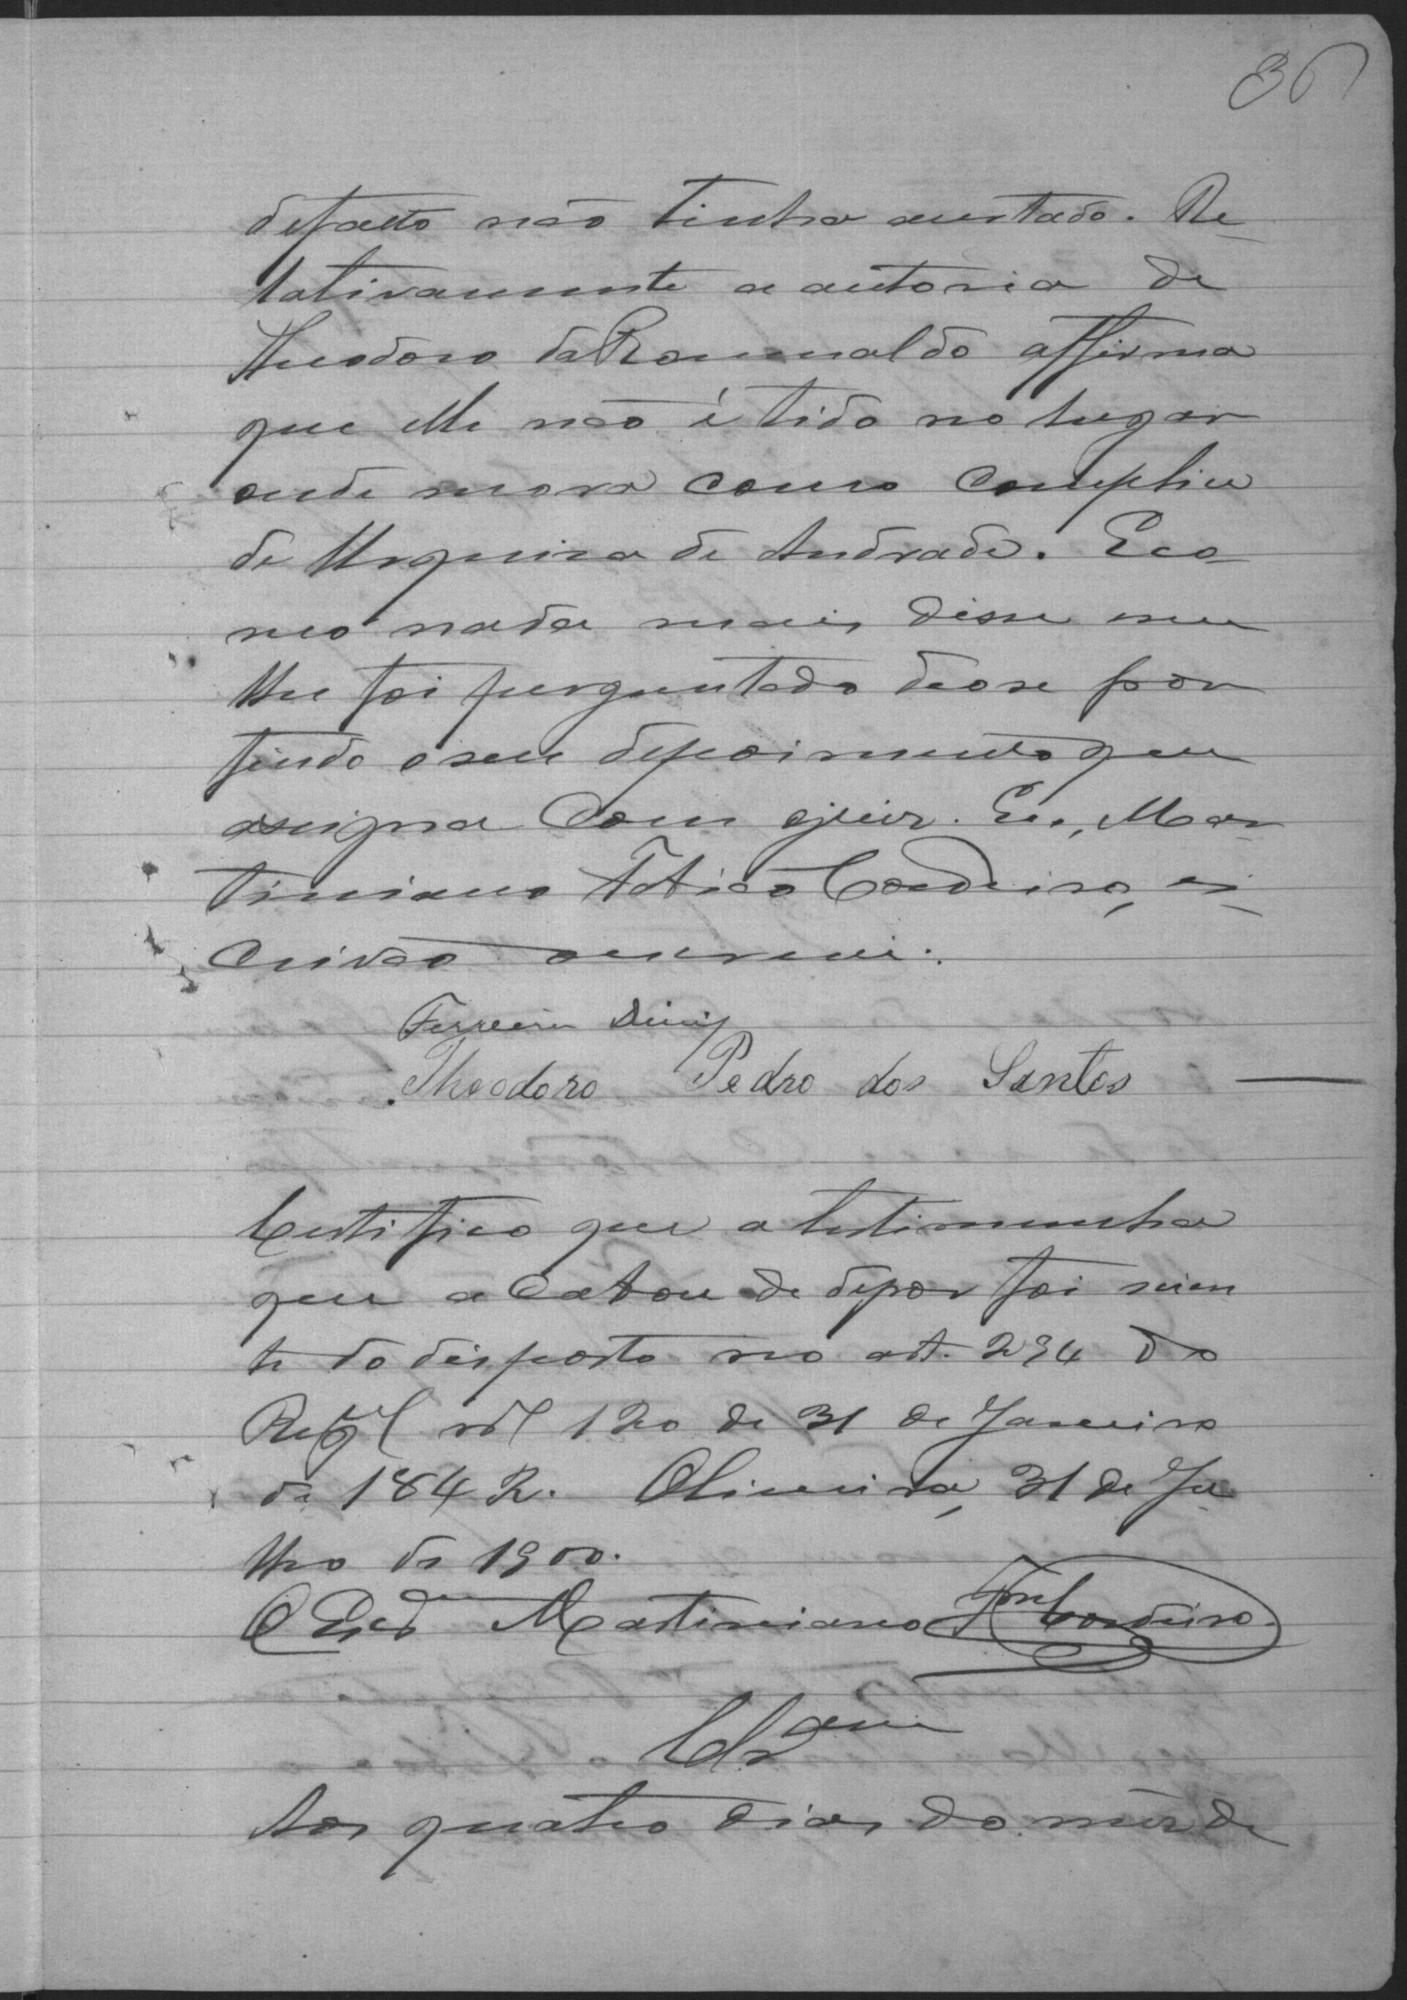 36
defacto não tinha acertado. Re-
lativamente a autoria de
Theodoro da Romualdo affirma
que elle não é tido no lugar
onde mora como complice
de Urquisa de Andrade. E co-
mo nada mais disse nem
lhe foi perguntado deose por
findo o seu depoimento que
assigna com o juiz. Eu, Mar-
timiano Cordeiro, es-
crivão o escrevi.
Ferreira Diniz
Theodoro Pedro dos Santos
Certifico que a testimunha
que acabou de depor foi scien
te do disposto no art. 294 do
Regl nº 120 de 31 de Janeiro
de 1842. Oliveira, 31 de Ju
lho de 1900.
O Escrm Martimiano Cordeiro
Clsam
Aos quatro dias do mez de